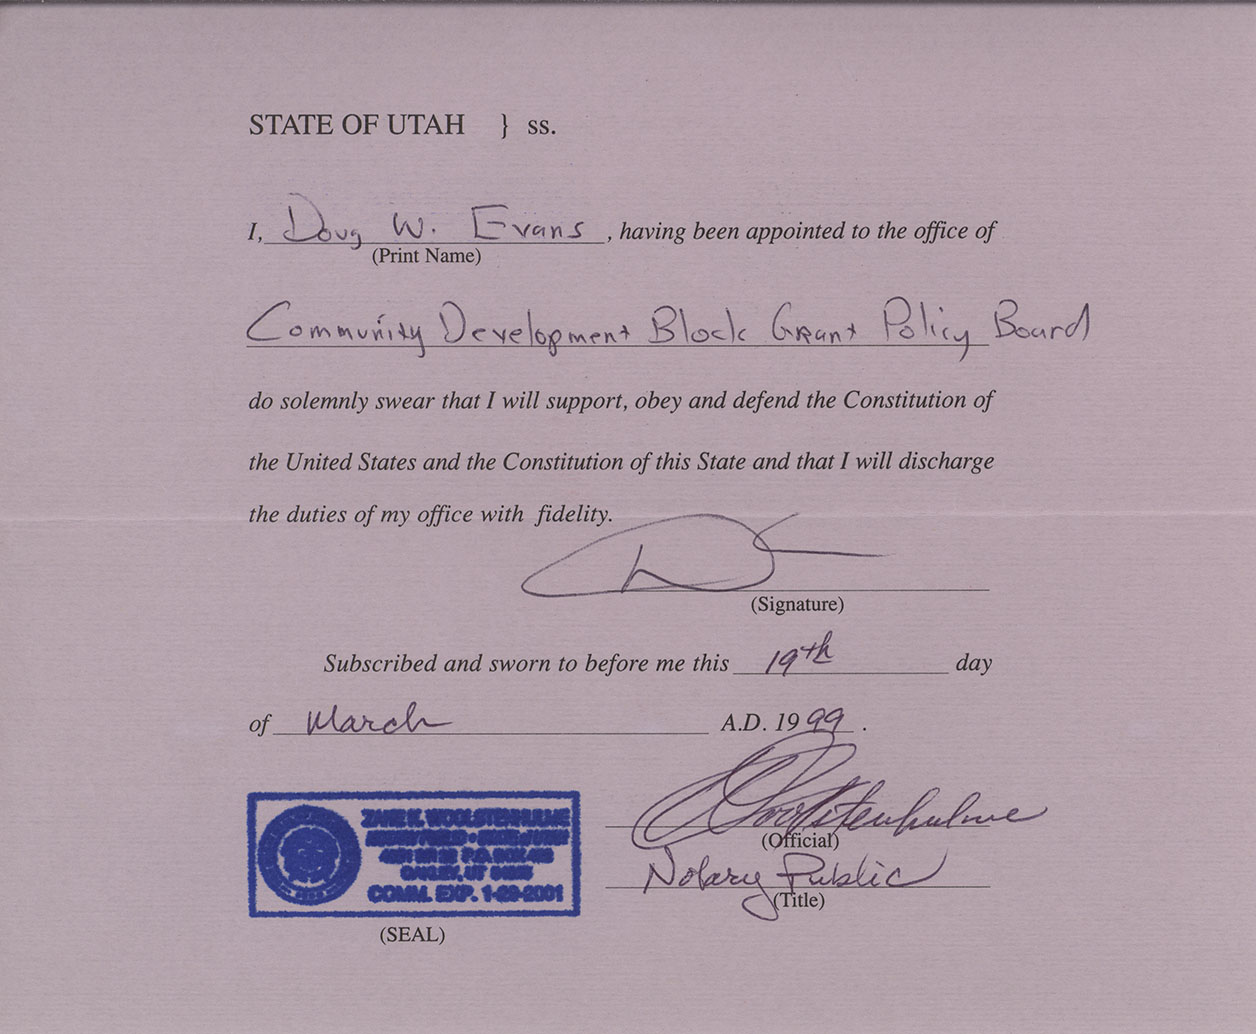 STATE OF UTAH } ss.
I, Doug W. Evans, having been appointed to the office of
(Print Name)
Community Development Block Grant Policy Board
do solemnly swear that I will support, obey and defend the Constitution of
the United States and the Constitution of this State and that I will discharge
the duties of my office with fidelity.
(Signature)
Subscribed and sworn to before me this 19th day
of March A.D. 1999.
Woolstenhulme
(Official)
Notary Public
(Title)
ZANE K. WOOLSTENHULME
OAKLEY, UT
COMM. EXP. 1-29-2001
(SEAL)